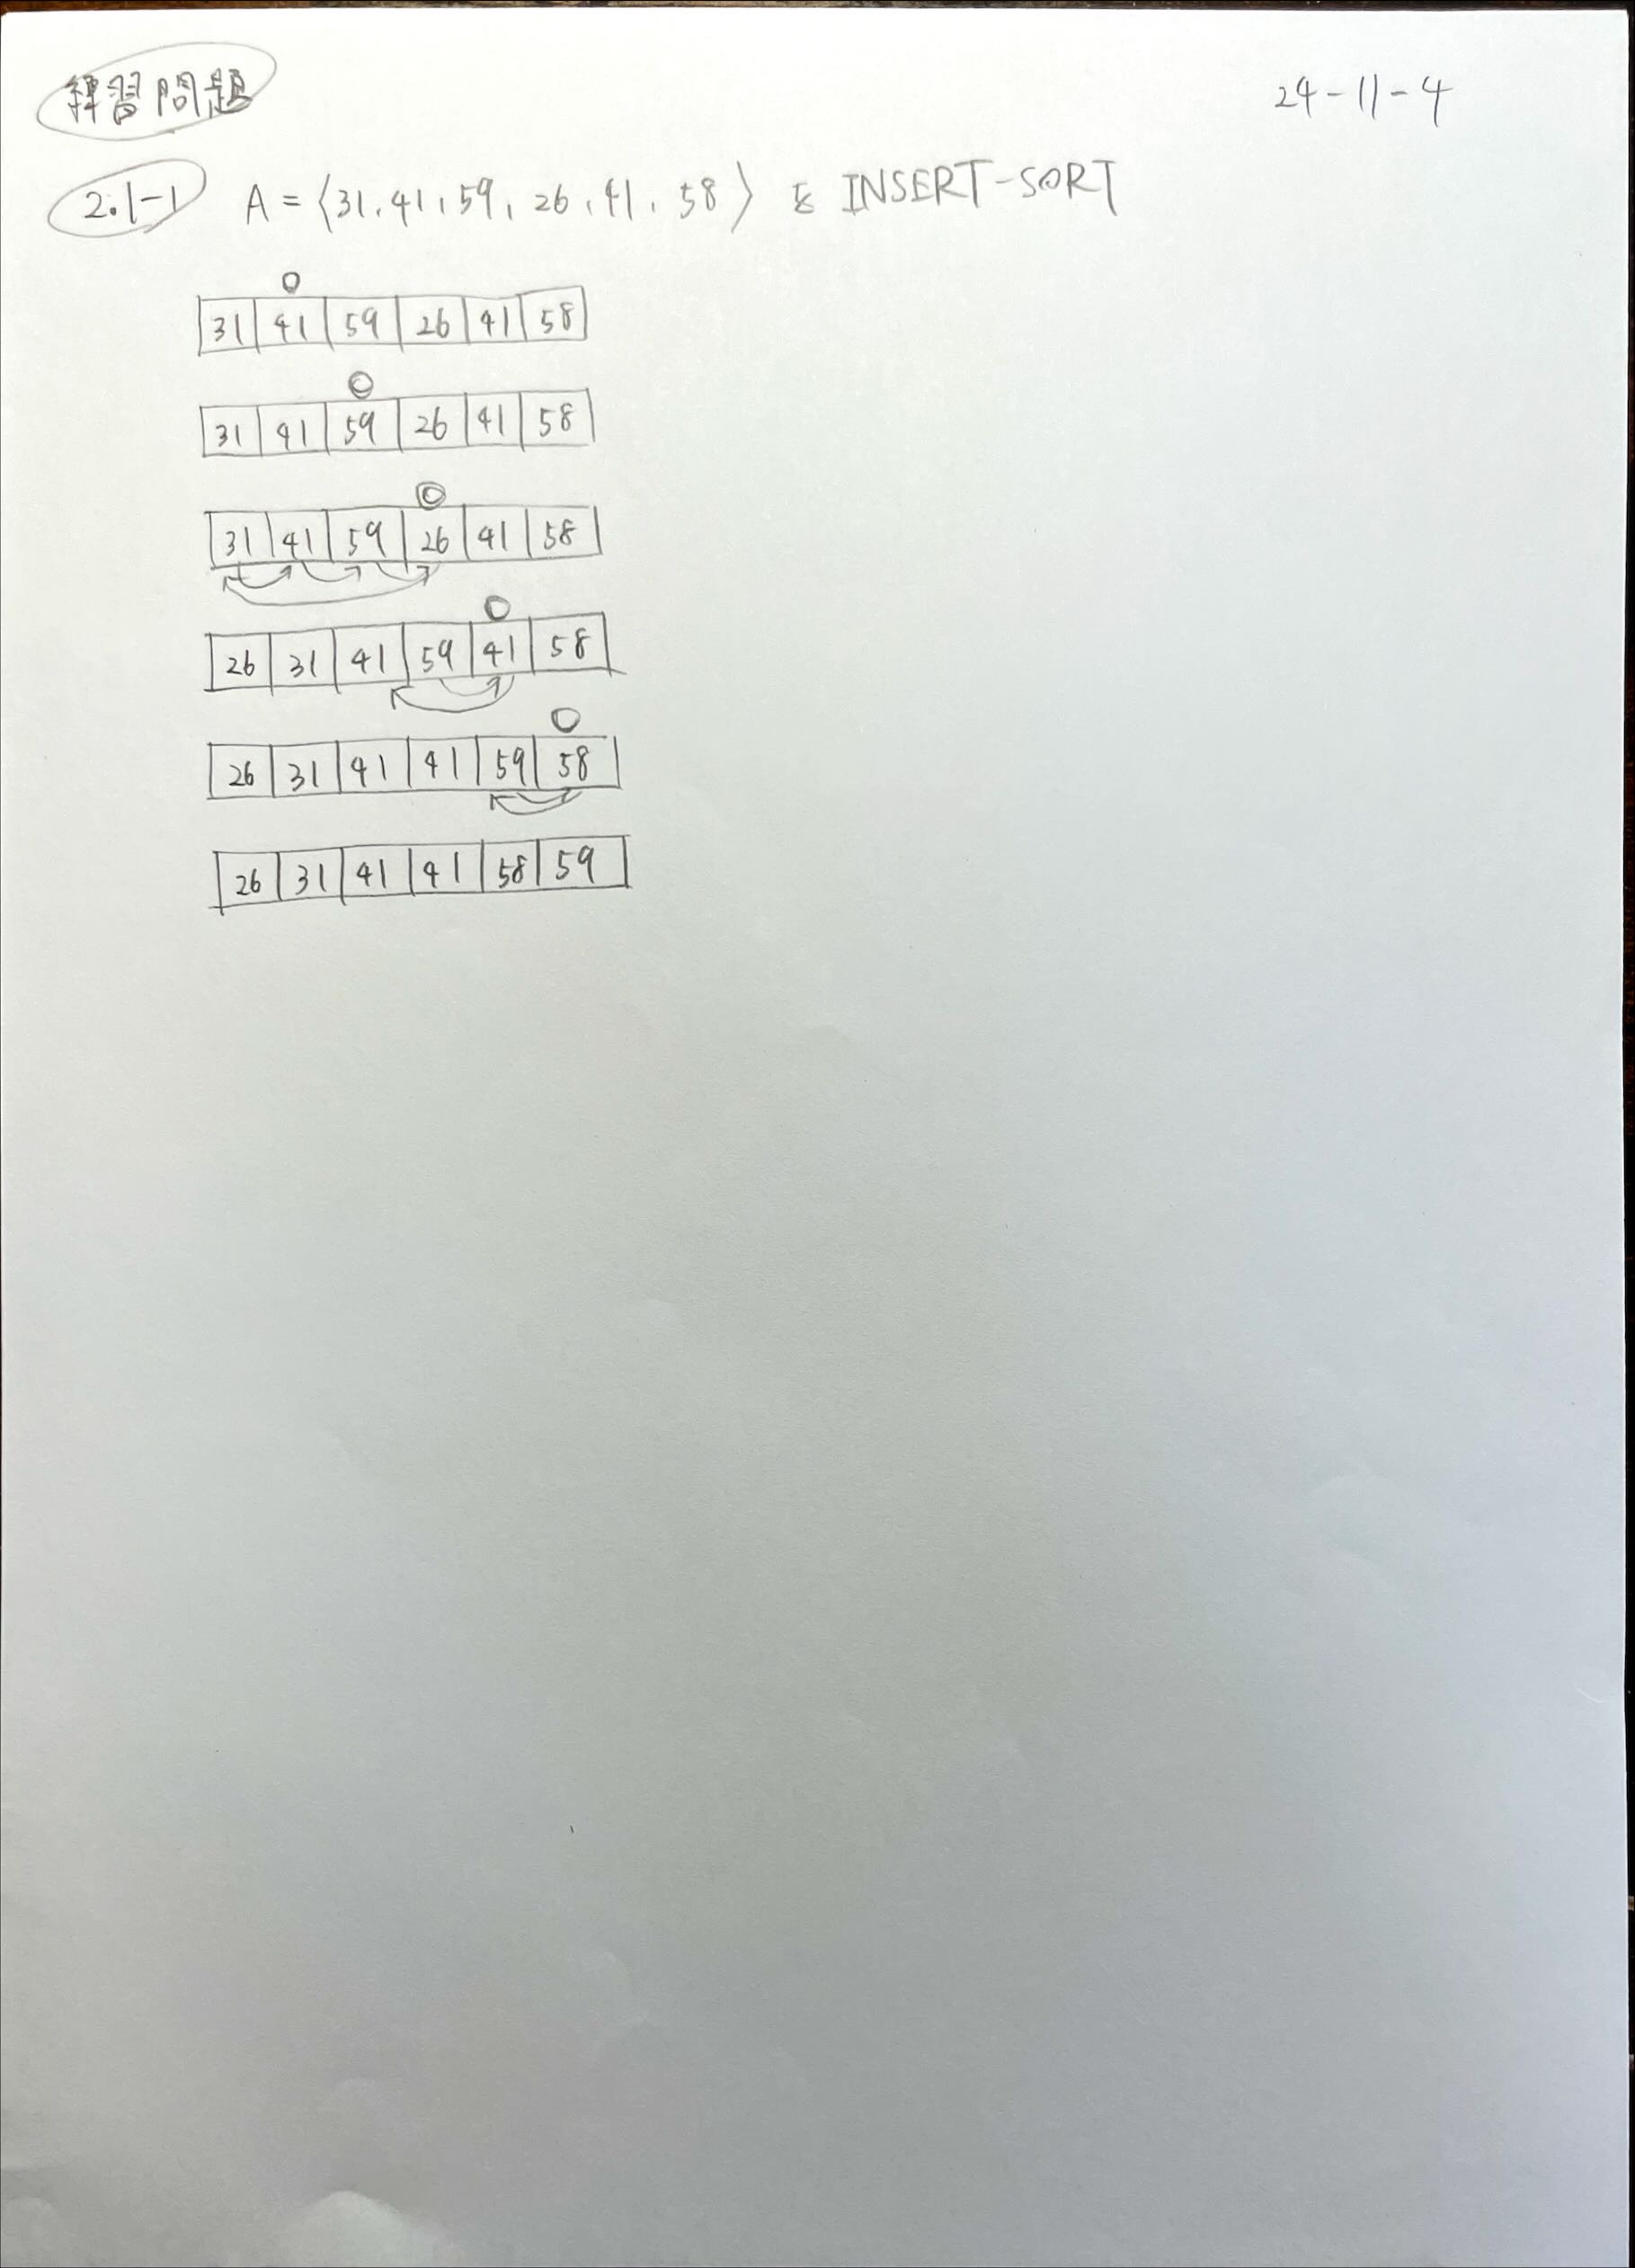 練習問題
24-11-4
2.1-1 A = ⟨31, 41, 59, 26, 41, 58⟩ を INSERT-SORT
31 41 59 26 41 58
31 41 59 26 41 58
31 41 59 26 41 58
26 31 41 59 41 58
26 31 41 41 59 58
26 31 41 41 58 59